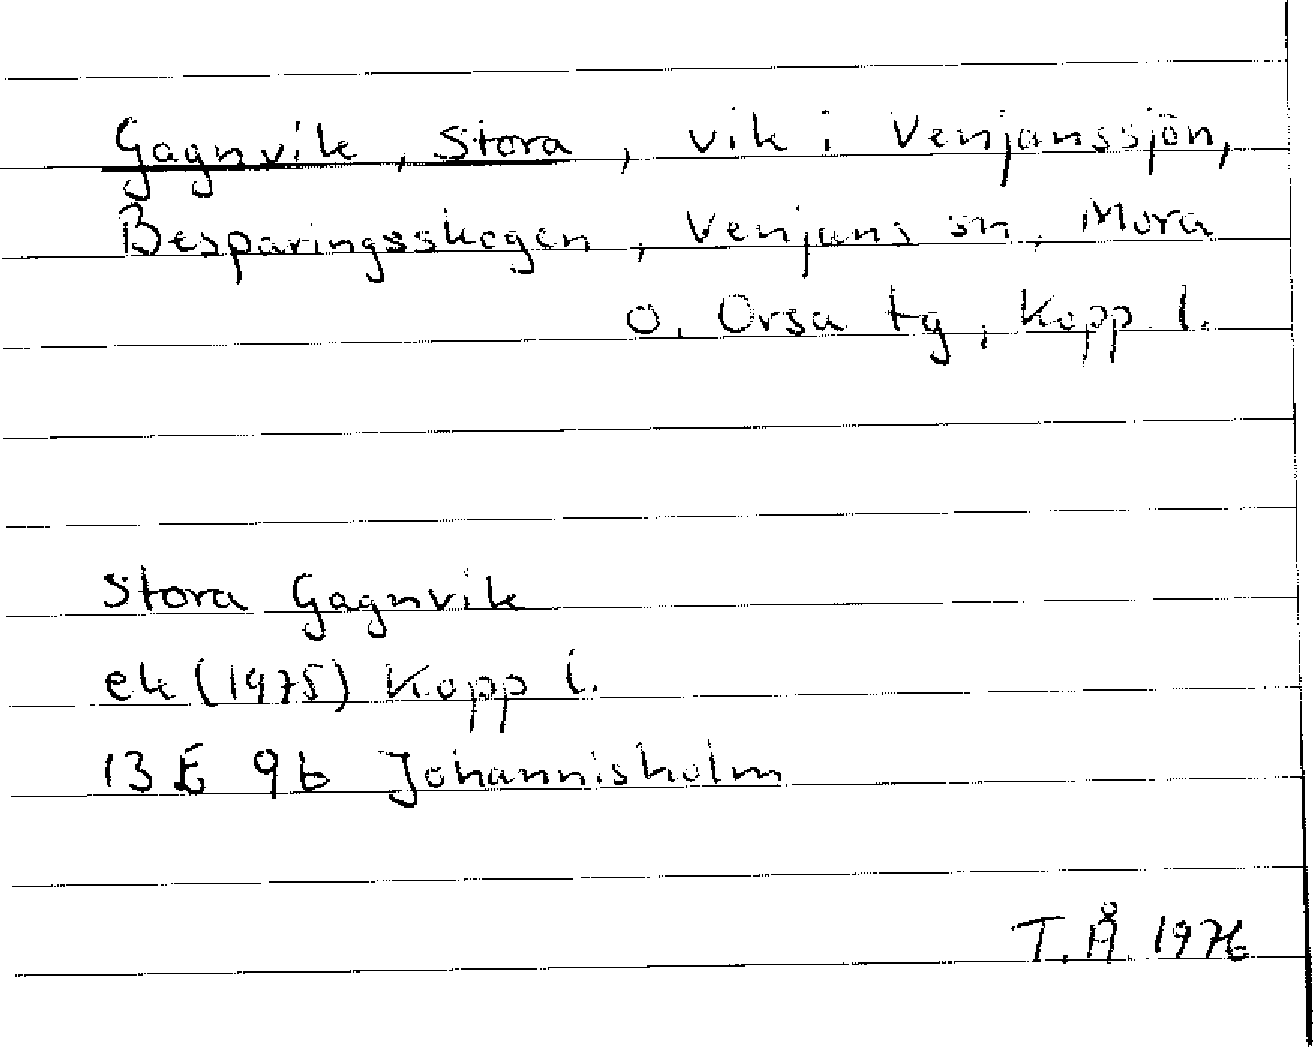 Gagnvik, Stora, vik i Venjanssjön,
Besparingsskogen, Venjans sn, Mora
o. Orsa tg, Kopp l.
Stora Gagnvik
ek (1975) Kopp l.
13 E 9b Johannisholm
T.Å. 1976